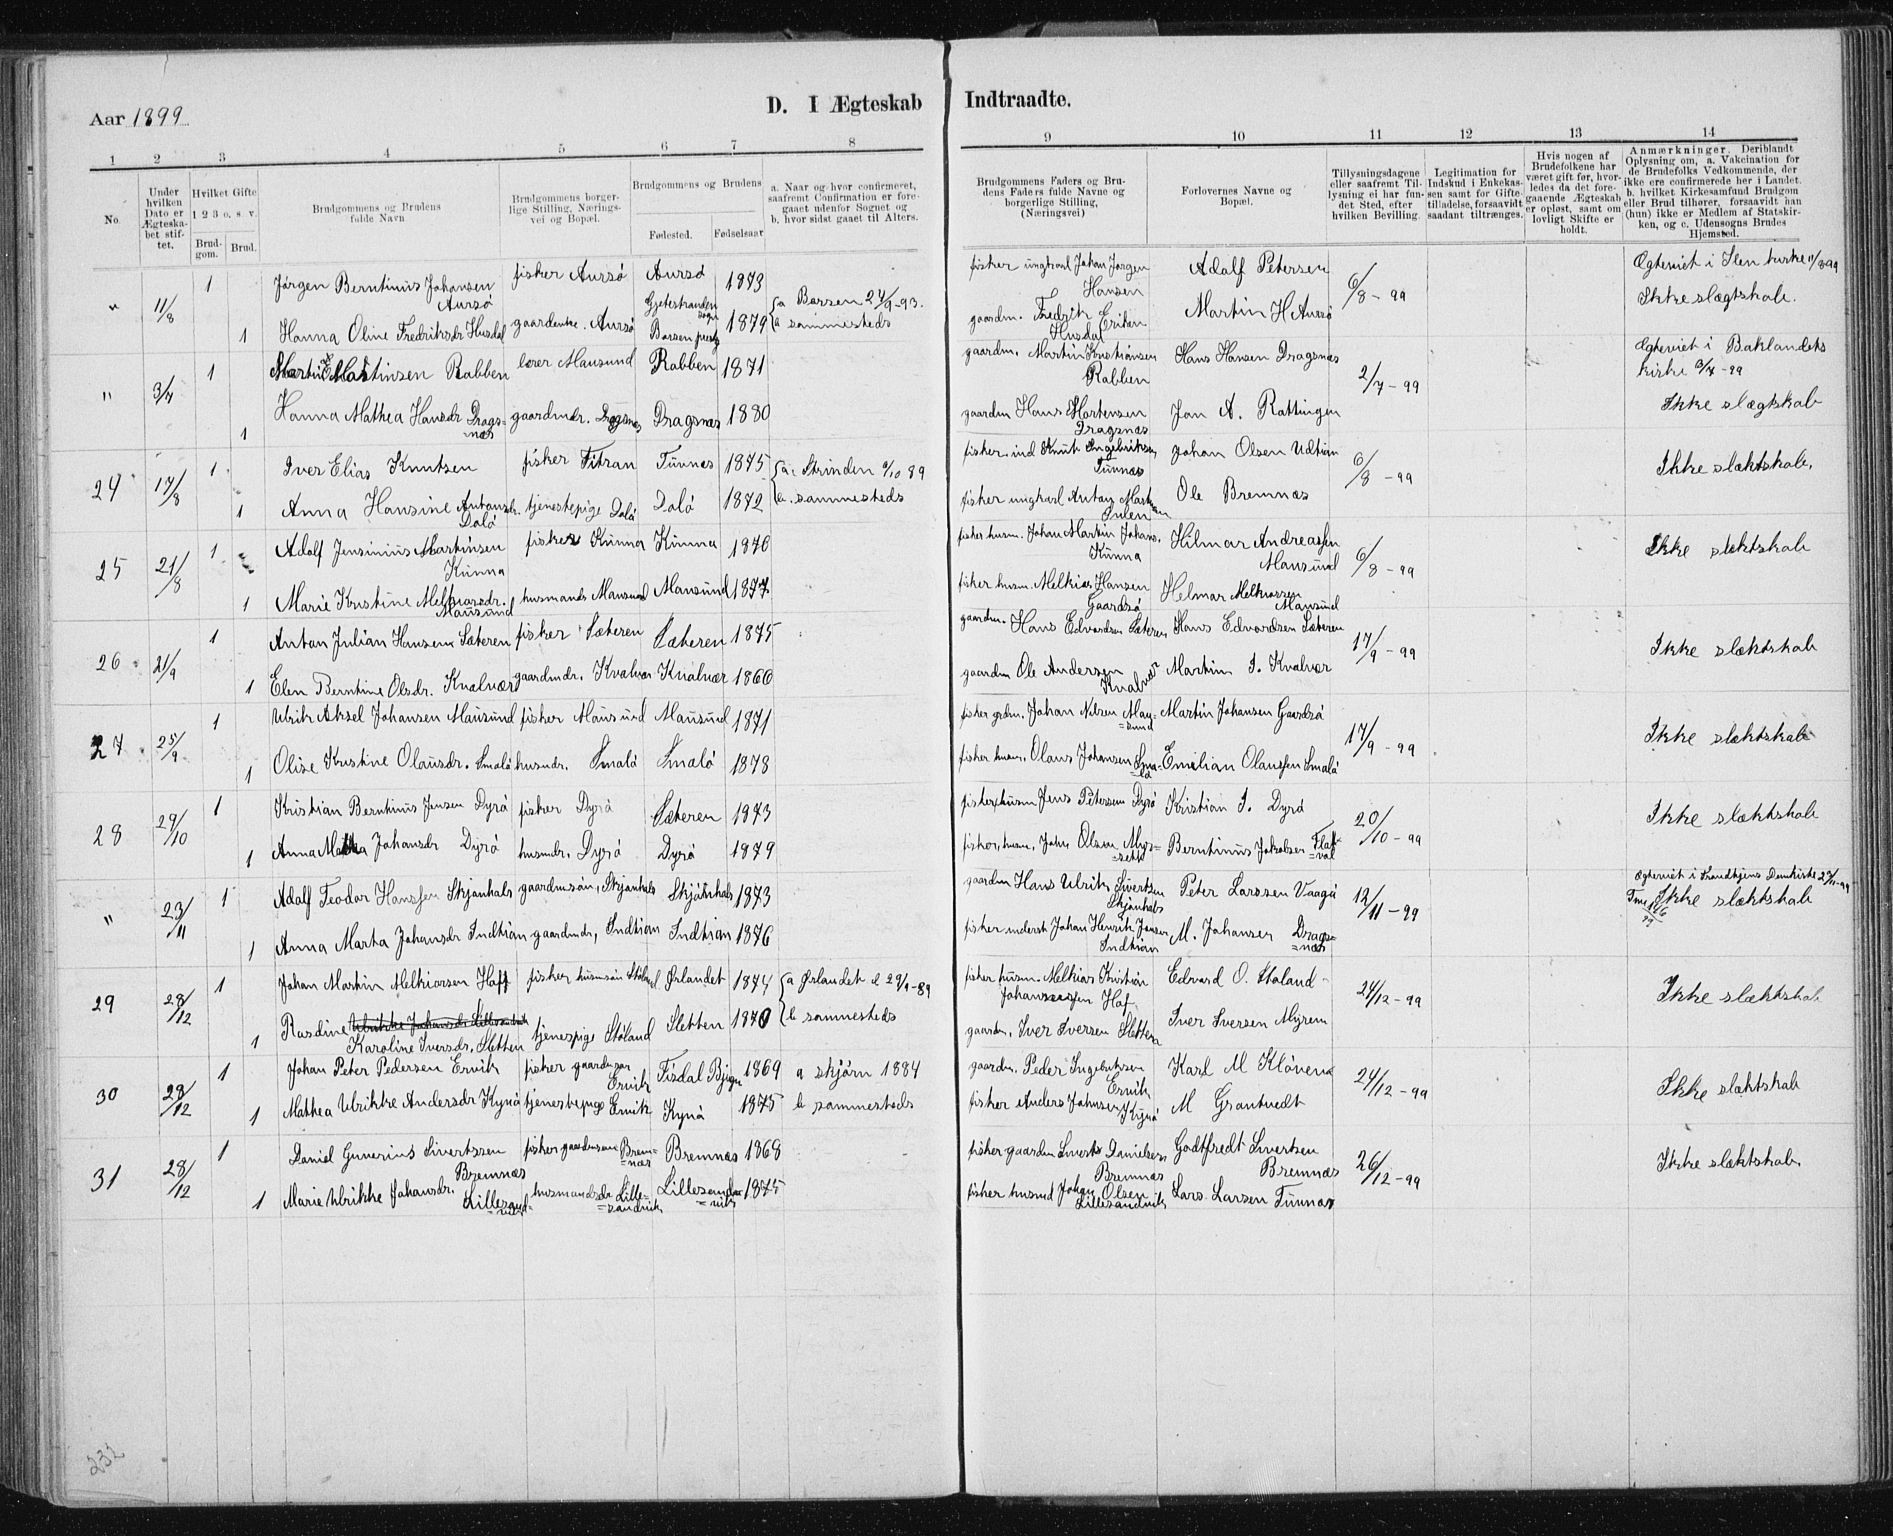 Aar 1899
D. I Ægteskab Indtraadte.
1 2 3 4 5 6 7 8 9 10 11 12 13 14
No.
Under hvilken Dato er Ægteskabet stiftet.
Hvilket Gifte 1 2 3 o. s. v.
Brudgom. Brud.
Brudgommens og Brudens fulde Navn
Brudgommens borgerlige Stilling, Næringsvei og Bopæl.
Brudgommens og Brudens
Fødested. Fødselsaar
a. Naar og hvor confirmeret, saafremt Confirmation er foregaaet udenfor Sognet og b. hvor sidst gaaet til Alters.
Brudgommens Faders og Brudens Faders fulde Navne og borgerlige Stilling, (Næringsvei)
Forlovernes Navne og Bopæl.
Tillysningsdagene eller saafremt Tillysning ei har fundet Sted, efter hvilken Bevilling.
Legitimation for Indskud i Enkekassen samt for Giftetilladelse, forsaavidt saadant tiltrænges.
Hvis nogen af Brudefolkene har været gift før, hvorledes da det foregaaende Ægteskab er opløst, samt om lovligt Skifte er holdt.
Anmærkninger. Deriblandt Oplysning om, a. Vakcination for de Brudefolks Vedkommende, der ikke ere confirmerede her i Landet. b. hvilket Kirkesamfund Brudgom eller Brud tilhører, forsaavidt han (hun) ikke er Medlem af Statskirken, og c. Udensogns Brudes Hjemsted.
" 11/8 1 Jørgen Berntinus Johansen Aursø fisker Aursø Aursø 1873 a Børsen 24/9-93. fisker ungkarl Johan Jørgen Hansen Adolf Petersen 6/8-99 Ægteviet i Ilen kirke 11/8 99
1 Hanna Oline Fredriksdr Husdal gaardenke. Aursø Børsen 1879 sammesteds gaardm. Fredrik Eriksen Husdal Martin H Aursø Ikke slægtskab.
" 3/7 1 Martin Martinsen Rabben lærer Mausund Rabben 1871 gaardm. Martin Kristiansen Rabben Hans Hansen Dragsnæs 2/7-99 Ægteviet i Baklandets kirke 3/7-99
1 Hanna Mathea Hansdr Dragsnæs gaardmdr. Dragsnæs Dragsnæs 1880 gaardm Hans Mortensen Dragsnæs Jon A. Rottingen Ikke slægtskab
24 17/8 1 Iver Elias Knutsen fisker Titran Tunnæs 1875 a. Strinden 6/10 89 fisker ind Knut Ingebriktsen Tunnæs Johan Olsen Udtian 6/8-99 Ikke slæktskab.
1 Anna Hansine Antonsdr. Dolø tjenestepige Dolø Dolø 1872 sammesteds fisker ungkarl Anton Ole Bremnæs
25 21/8 1 Adolf Jensinius Martinsen Kunna fisker Kunna Kunna 1876 fisker husm. Johan Martin Johans. Kunna Hilmar Andreassen Mausund 6/8-99 Ikke slæktskab
1 Marie Kristine Melkiorsdr. Mausund husmands Mausund Mausund 1877 fisker husm. Melkior Hansen Gaardsø Helmar Melkiorsen Mausund
26 21/9 1 Anton Julian Hansen Sæteren fisker Sæteren Sæteren 1875 gaardm. Hans Edvardsen Sæteren Hans Edvardsen Sæteren 17/9-99 Ikke slæktskab
1 Elen Berntine Olsdr. Kvalvær gaardmdr. Kvalvær Kvalvær 1866 gaardm Ole Andersen Kvalvær Martin J. Kvalvær
27 25/9 1 Ulrik Aksel Johansen Mausund fisker Mausund Mausund 1871 fisker grdm. Johan Nilsen Mausund Martin Johansen Gaardsø 17/9-99 Ikke slæktskab
1 Olise Kristine Olausdr. Smalø husmdr. Smalø Smalø 1878 fisker husm. Olaus Johansen Smalø Emilian Olaussen Smalø
28 29/10 1 Kristian Berntinus Jensen Dyrø fisker Dyrø Sæteren 1873 fisker husm Jens Petersen Dyrø Kristian J. Dyrø 20/10-99 Ikke slæktskab
1 Anna Johansdr Dyrø husmdr. Dyrø Dyrø 1879 fisker, husm, John Olsen Berntinus Jakobsen Flatval
" 23/11 1 Adolf Teodor Hanssen Skjønhals gaardmsøn, Skjønhals Skjønhals 1873 gaardm Hans Ulrik Sivertsen Skjønhals Peter Larssen Vaagø 12/11-99 Ægteviet i Trondhjems Domkirke 23/11-99 Ikke slæktskab
1 Anna Marta Johansdr Indtian gaardmdr, Indtian Indtian 1876 fisker Johan Henrik Jansen Indtian M. Johansen Dragsnæs
29 28/12 1 Johan Martin Melkiorsen Haff fisker husmsøn Støland Ørlandet 1874 a Ørlandet d 29/9-89 fisker husm. Melkior Kristian Johannessen Haf Edvard O. Støland 24/12-99 Ikke slæktskab
1 Rasdine Karoline Iversdr. Sletten tjenespige Støland Sletten 1870 b sammesteds gaardm. Iver Iversen Sletten Iver Iversen Myren
30 28/12 1 Johan Peter Pedersen Ervik fisker gaardmsøn Ervik Fisdal Bjugn 1869 a skjørn 1884 gaardm. Peder Ingebriktsen Ervik Karl M Kløven 24/12-99 Ikke slæktskab
1 Mathea Ulrikke Andersdr Kynø tjenestepige Ervik Kynø 1875 b sammesteds fisker Anders Johnsen Kynø M Grøntvedt
31 28/12 1 Daniel Gunerius Sivertsen Bremnæs fisker gaardmsøn Bremnæs Bremnæs 1868 fisker gaardm Sivert Danielsen Bremnæs Godtfredt Sivertsen Bremnæs 26/12-99 Ikke slæktskab.
1 Marie Ulrikke Johansdr. Lillesandvik husmandsdr Lillesandvik Lillesandvik 1875 fisker husmd Johan Olsen Lillesandvik Lars Larsen Tunnæs
232